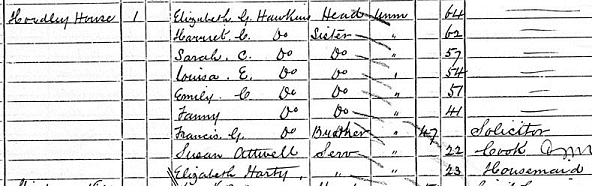 Hoadley House 1 Elizabeth G. Hawkins Head Unm 64
Harriet C. Do Sister " 62
Sarah. C. Do Do " 57
Louisa. E. Do Do " 54
Emily. C Do Do " 51
Fanny Do Do " 41
Francis. G. Do Brother " 47 Solicitor
Susan Attwell Serv " 22 Cook
Elizabeth Harty, " " 23 Housemaid